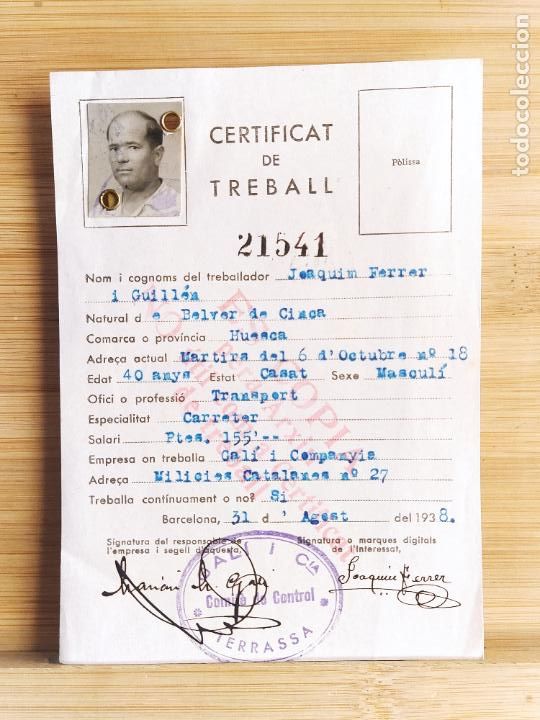 CERTIFICAT
DE
TREBALL
Pòlissa
21541
Nom i cognoms del treballador Joaquim Ferrer
i Guillén
Natural d e Belver de Cinca
Comarca o província Huesca
Adreça actual Martirs del 6 d'Octubre nº 18
Edat 40 anys Estat Casat Sexe Masculí
Ofici o professió Transport
Especialitat Carreter
Salari Ptes. 155'--
Empresa on treballa Galí i Companyia
Adreça Milicies Catalanes nº 27
Treballa contínuament o no? Si
Barcelona, 31 d' Agost del 1938.
Signatura del responsable de
l'empresa i segell d'aquesta,
Signatura o marques digitals
de l'Interessat,
ES COPIA
NO
Certificat
de Treball
GALÍ I Cia
Comitè de Control
TERRASSA
Joaquin Ferrer
todocoleccion